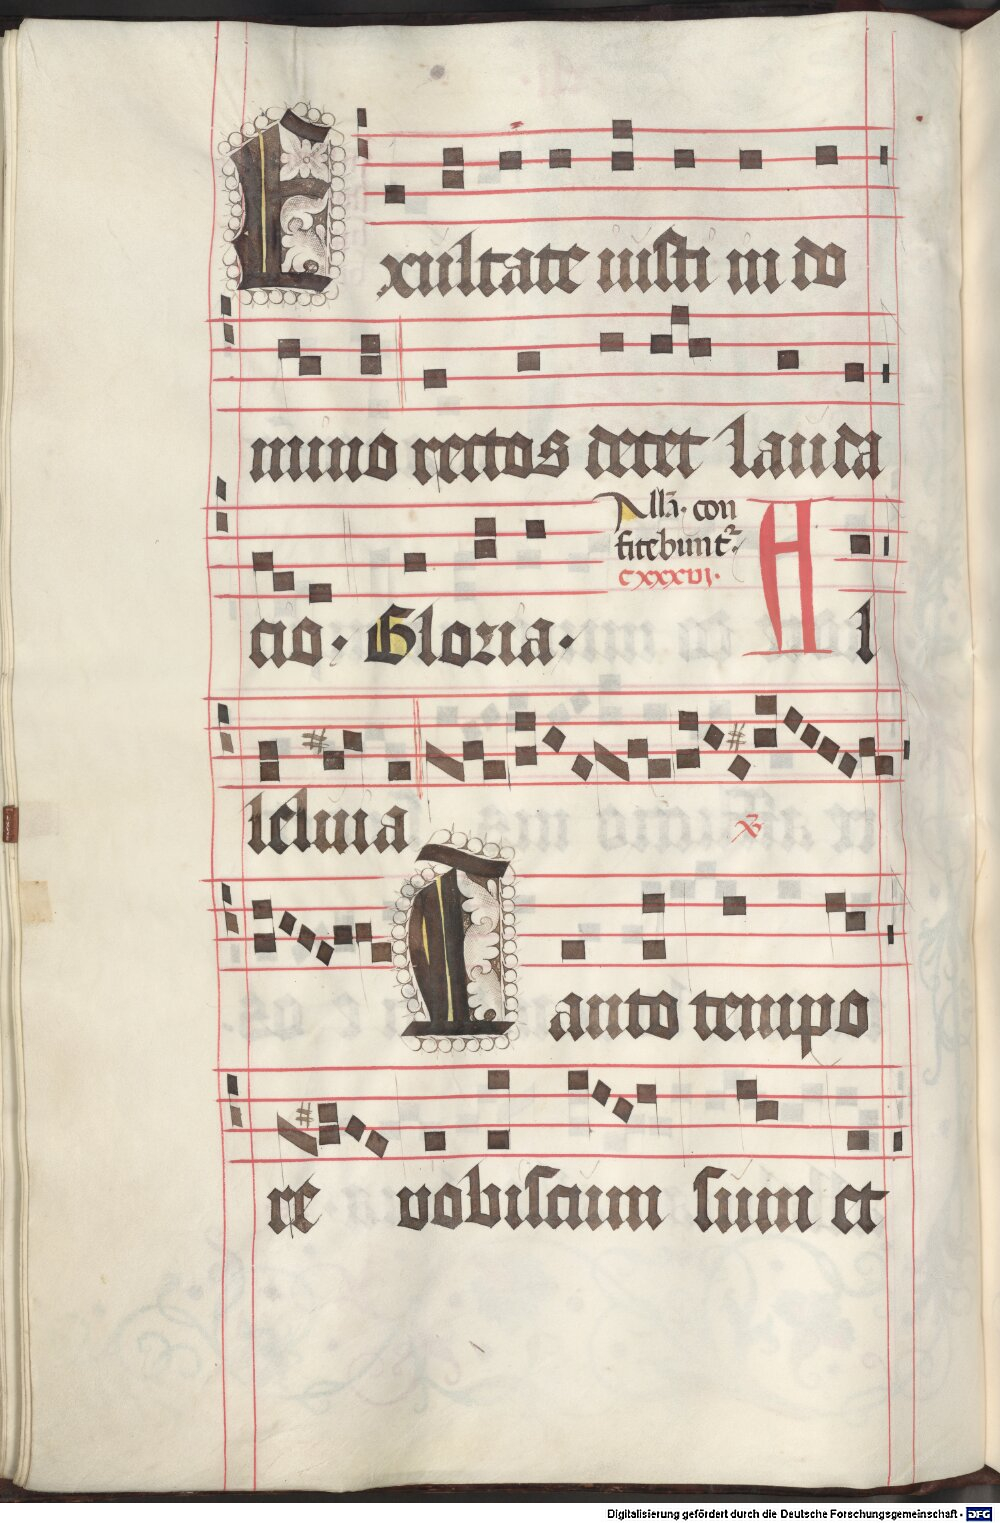 Exultate iusti in do
mino rectos decet lauda
cio. Gloria.
Alla. con
fitebunt.
cxxxvj.
Al
leluia
Tanto tempo
re vobiscum sum et
Digitalisierung gefördert durch die Deutsche Forschungsgemeinschaft - DFG